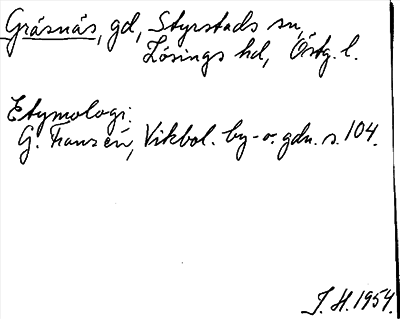 Gråsnäs, gd, Styrstads sn,
Lösings hd, Östg. l.
Etymologi:
G. Franzén, Vikbol. by- o. gdn. s. 104.
J. H. 1954.